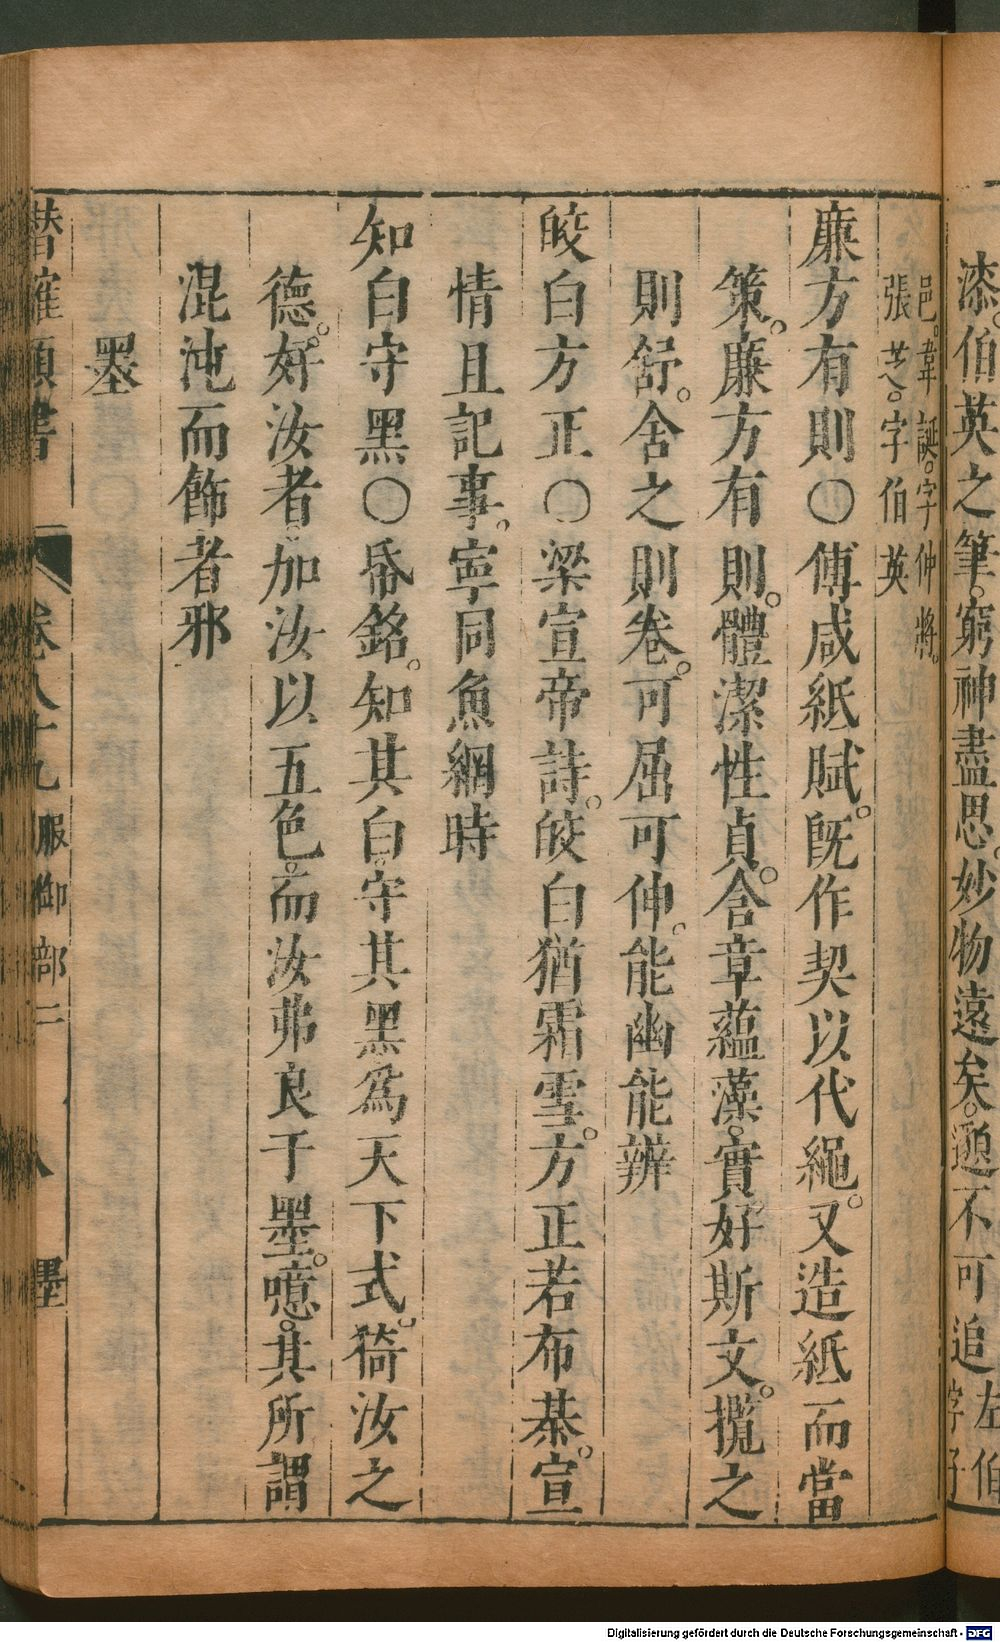 漆。伯英之筆。窮神盡思。妙物遠矣。邈不可追左伯
字子
邑。韋誕。字仲將。
張芝。字伯英
廉方有則〇傅咸紙賦。既作契以代繩。又造紙而當
策。廉方有則。體潔性貞。含章蘊藻。實好斯文。攬之
則舒。舍之則卷。可屈可伸。能幽能辨
皎白方正〇梁宣帝詩。皎白猶霜雪。方正若布棊。宣
情且記事。寧同魚網時
知白守黑〇帋銘。知其白。守其黑爲天下式。猗汝之
德。好汝者。加汝以五色。而汝弗良于墨。噫。其所謂
混沌而飾者邪
墨
潛確類書 卷八十九 服御部二 八 墨
Digitalisierung gefördert durch die Deutsche Forschungsgemeinschaft - DFG